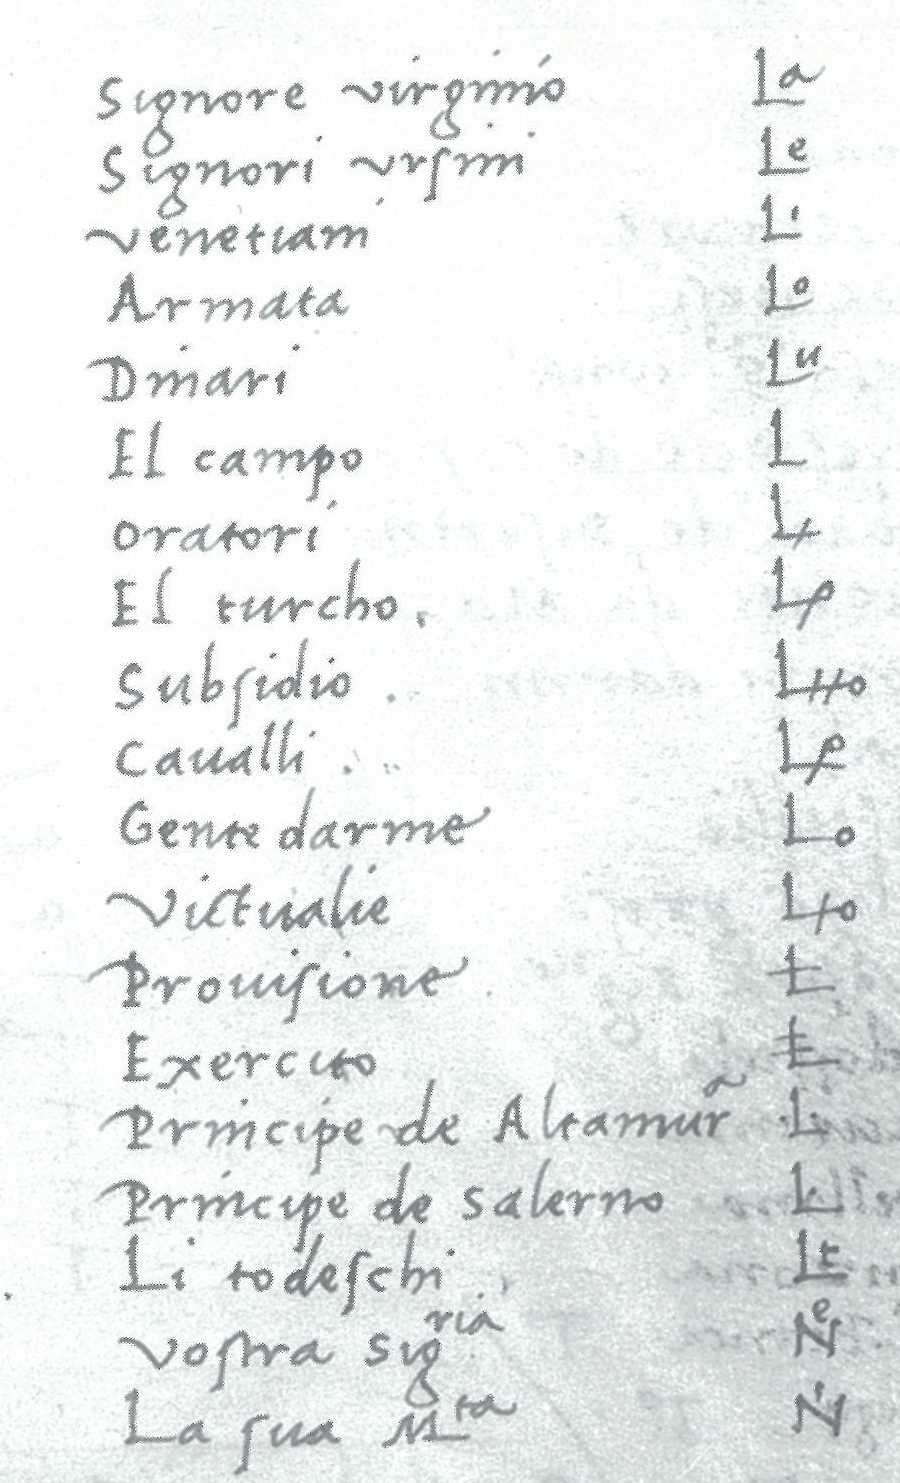 Signore virginio La
Signori vrſini Le
venetiani Li
Armata Lo
Dinari Lu
El campo L
oratori
El turcho.
Subſidio .
Caualli .
Gente darme
victualie
Prouiſione
Exercito
Principe de Altamurᵃ
Principe de salerno
Li todeſchi Lt
voſtra sigʳⁱᵃ Nᵉ
La ſua Mᵗᵃ Nⁱ